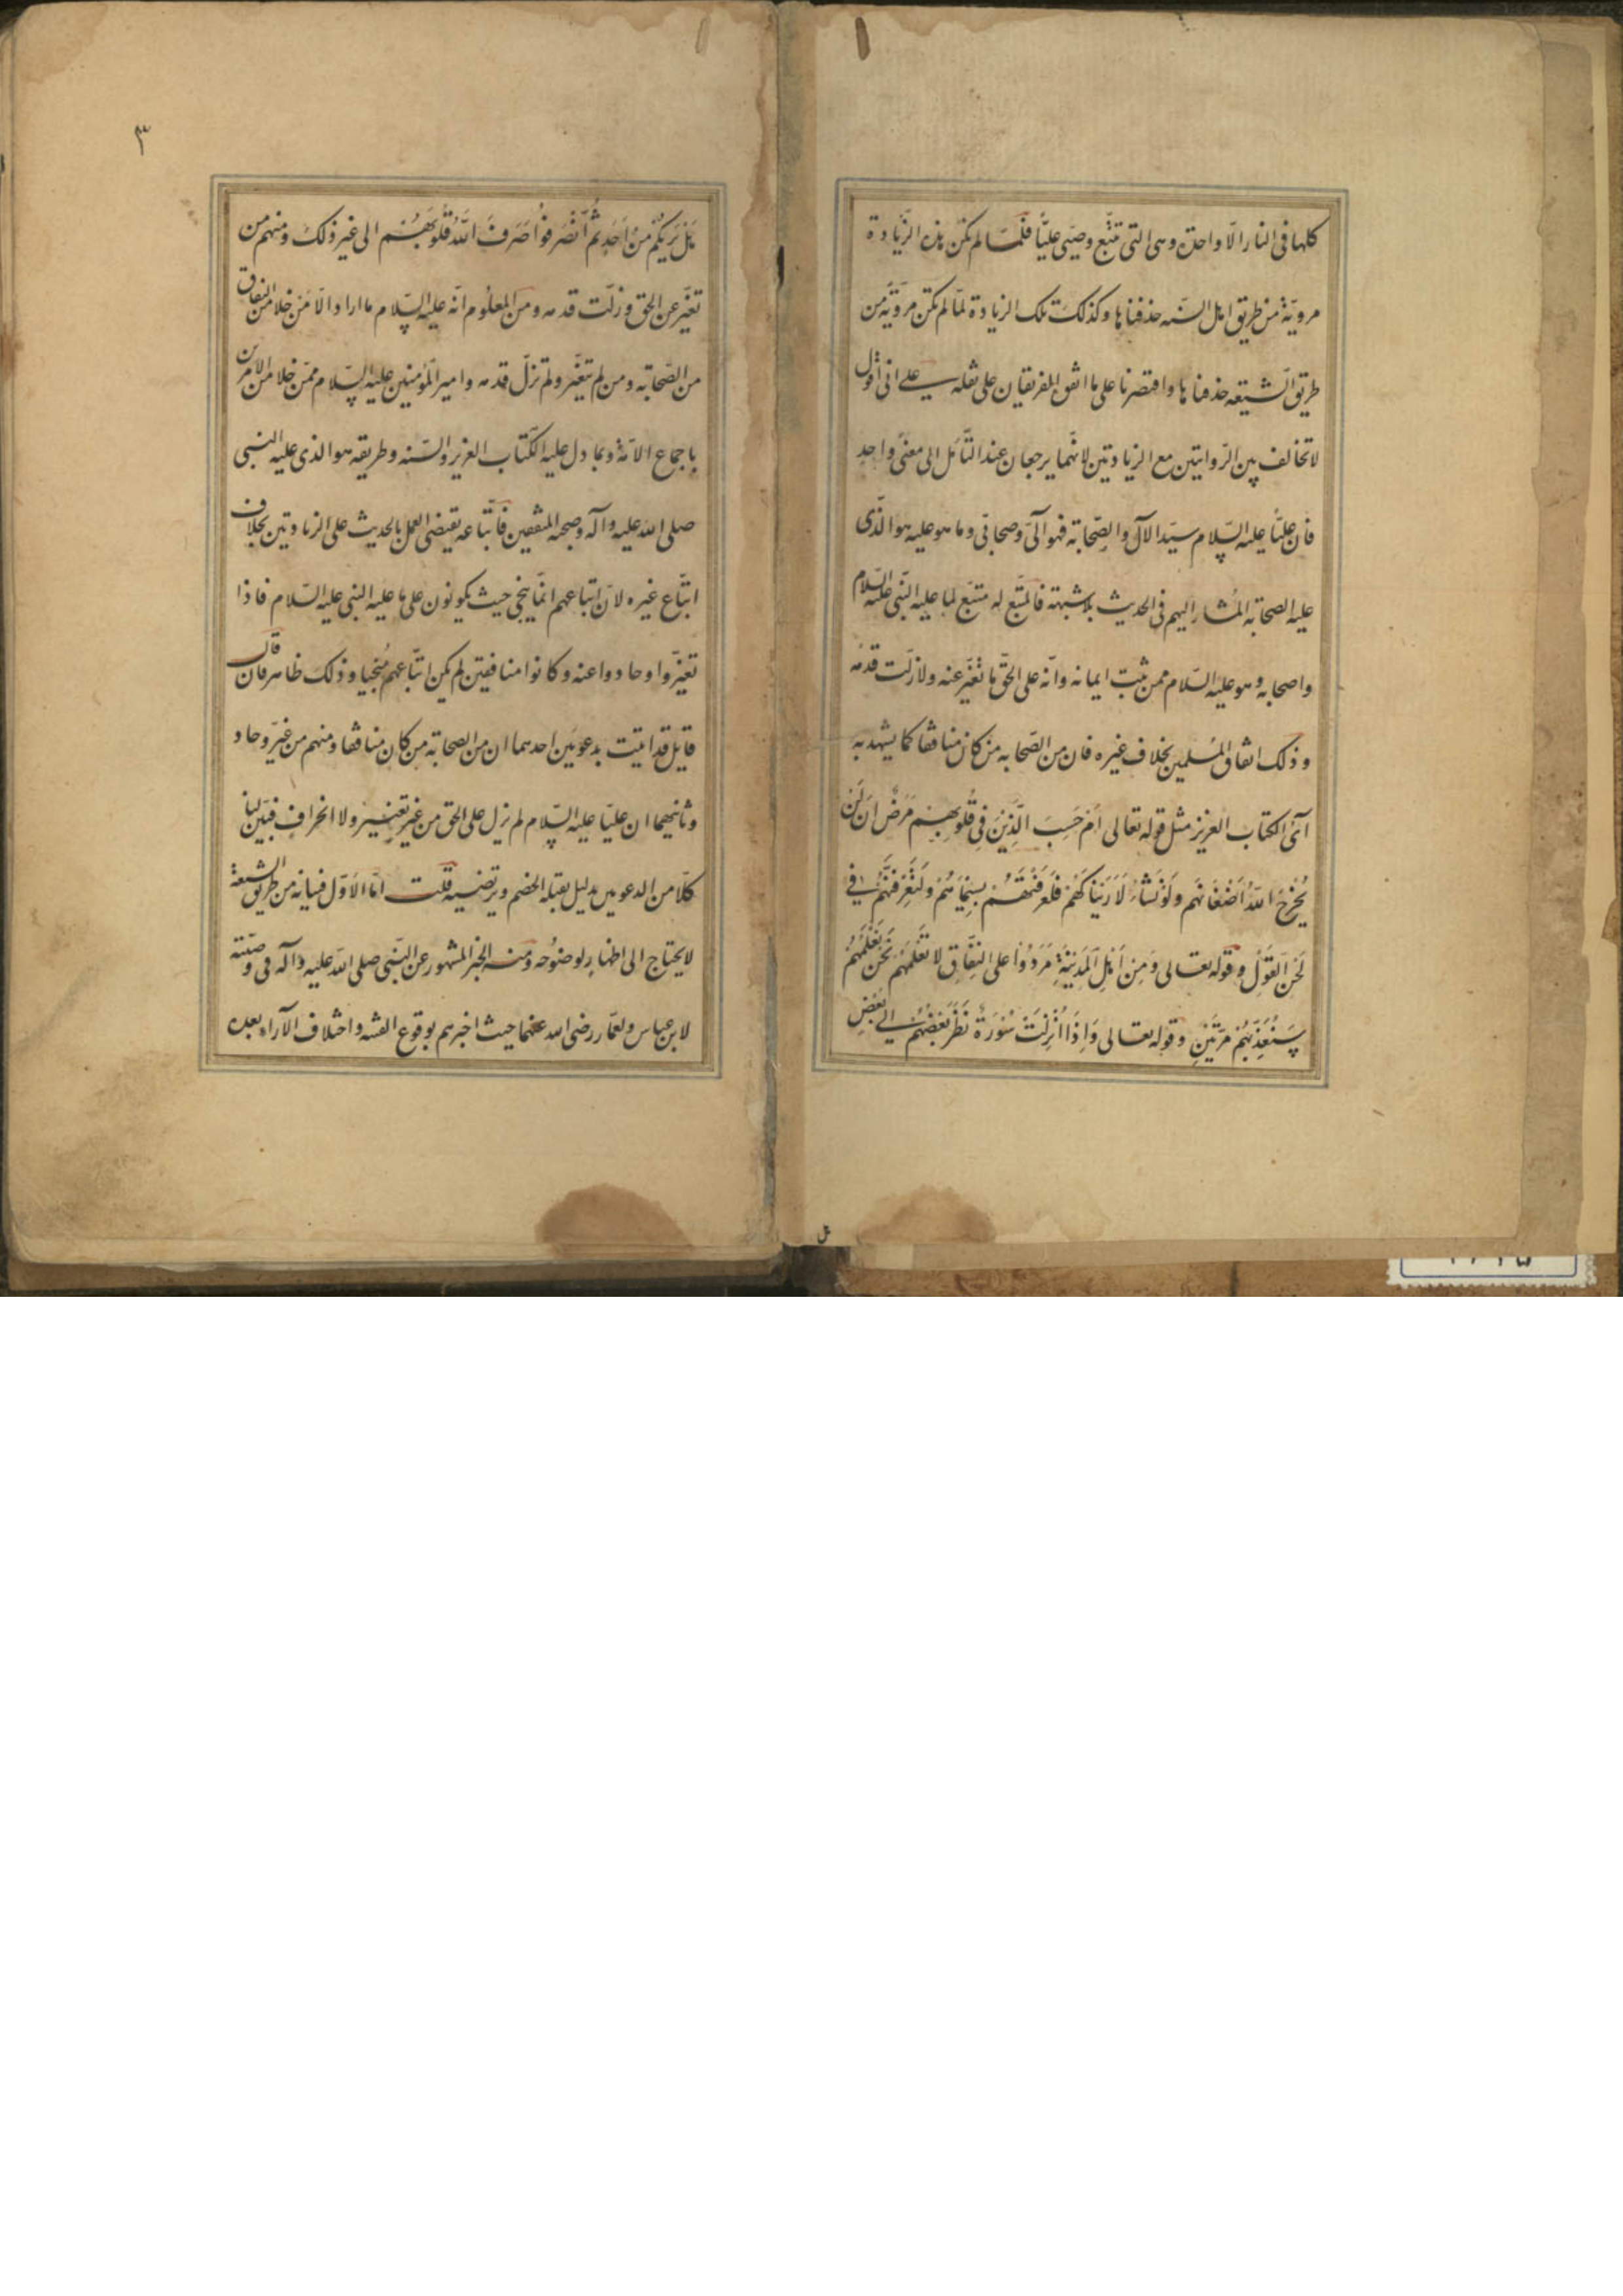 كلها فى النار الّا واحدة وهى التى تتبع وصيّى عليّاً فلمّا لم تكن هذه الزّيادة
مرويّة من طريق اهل السّنه حذفناها وكذلك تلك الزيادة لمّا لم تكن مرويّة من
طريق الشّيعه حذفناها واقتصرنا على ما اتفق الفريقان على نقله على انى اقول
لا تخالف بين الرّوايتين مع الزيادتين لانّهما يرجعان عند التّأمّل الى معنىً واحد
فان عليّاً عليه السّلام سيّد الآل والصّحابة فهو آلىّ وصحابىّ وما هو عليه هو الذّى
عليه الصحابة المُشار اليهم فى الحديث بلا شبهة فالمتّبع له متبّع لما عليه النّبى عليه السّلام
واصحابه وهو عليه السّلام ممن ثبت ايمانه وانّه على الحقّ ما تغيّر عنه ولا زلّت قدمه
وذلك اتفاق المُسلمين بخلاف غيره فان من الصّحابه من كان منافقا كما يشهد به
آىُ الكتاب العزيز مثل قوله تعالى أم حَسِبَ الَّذِينَ فِى قُلُوبِهِم مَرَضٌ اَن لَن
يُخْرِجَ اللّهُ أَضْغَانَهُم وَلَوْ نَشَاءُ لَأَرَيْنَاكَهُم فَلَعَرَفْتَهُم بِسِيمَاهُمْ وَلَتَعْرِفَنَّهُمْ فِى
لَحْنِ القَوْلِ وقوله تعالى وَمِن أَهْلِ المَدِينَةِ مَرَدُوا على النِّفَاقِ لا تَعْلَمُهُم نَحْنُ نَعْلَمُهُمْ
سَنُعَذِّبُهُمْ مَرَّتَيْنِ وقوله تعالى وَاِذَا اُنْزِلَتْ سُورَةٌ نَظَرَ بَعْضُهُمْ اِلى بَعْضٍ
هل
٣
هَلْ يَرَيكُمْ مِنْ اَحَدٍ ثُمَّ انْصَرَفوُا صَرَفَ اللّهُ قُلُوبَهُمْ الى غير ذلك ومنهم من
تغيّر عن الحق وزلّت قدمه ومن المعلُوم انّه عليه السّلام ما اراد الّا من خلا من النفاق
من الصّحابة ومن لم يتغيّر ولم تزلّ قدمه وامير المؤمنين عليه السّلام ممّن خلا من الامرين
باجماع الامّة وبما دل عليه الكتاب العزيز والسّنه وطريقه هو الذى عليه النبى
صلى الله عليه وآله وصحبه المتّقين فاتّباعه يقتضى العمل بالحديث على الزيادتين بخلاف
اتّباع غيره لانّ اتباعهم انّما ينجى حيث يكونون على ما عليه النبى عليه السّلام فاذا
تغيّروا وحادوا عنه وكانوا منافقين لم يكن اتّباعهم مُنجيا وذلك ظاهر فان قال
قايل قد اتيت بدعويين احدهما ان من الصحابة من كان منافقا ومنهم من غيّر وحاد
وثانيهما ان عليّا عليه السّلام لم يزل على الحق من غير تغيير ولا انحراف فبيّن لنا
كلّا من الدعويين بدليل يقبله الخصم ويرتضيه قلت امّا الاوّل فبيانه من طريق الشّيعة
لا يحتاج الى اظهارٍ لوضوُحه ومنه الخبر المشهور عن النّبى صلى الله عليه وآله فى وصيّته
لابن عباس ولعمّار رضى الله عنهما حيث اخبرهم بوقوع الفتنه واختلاف الآراء بعده